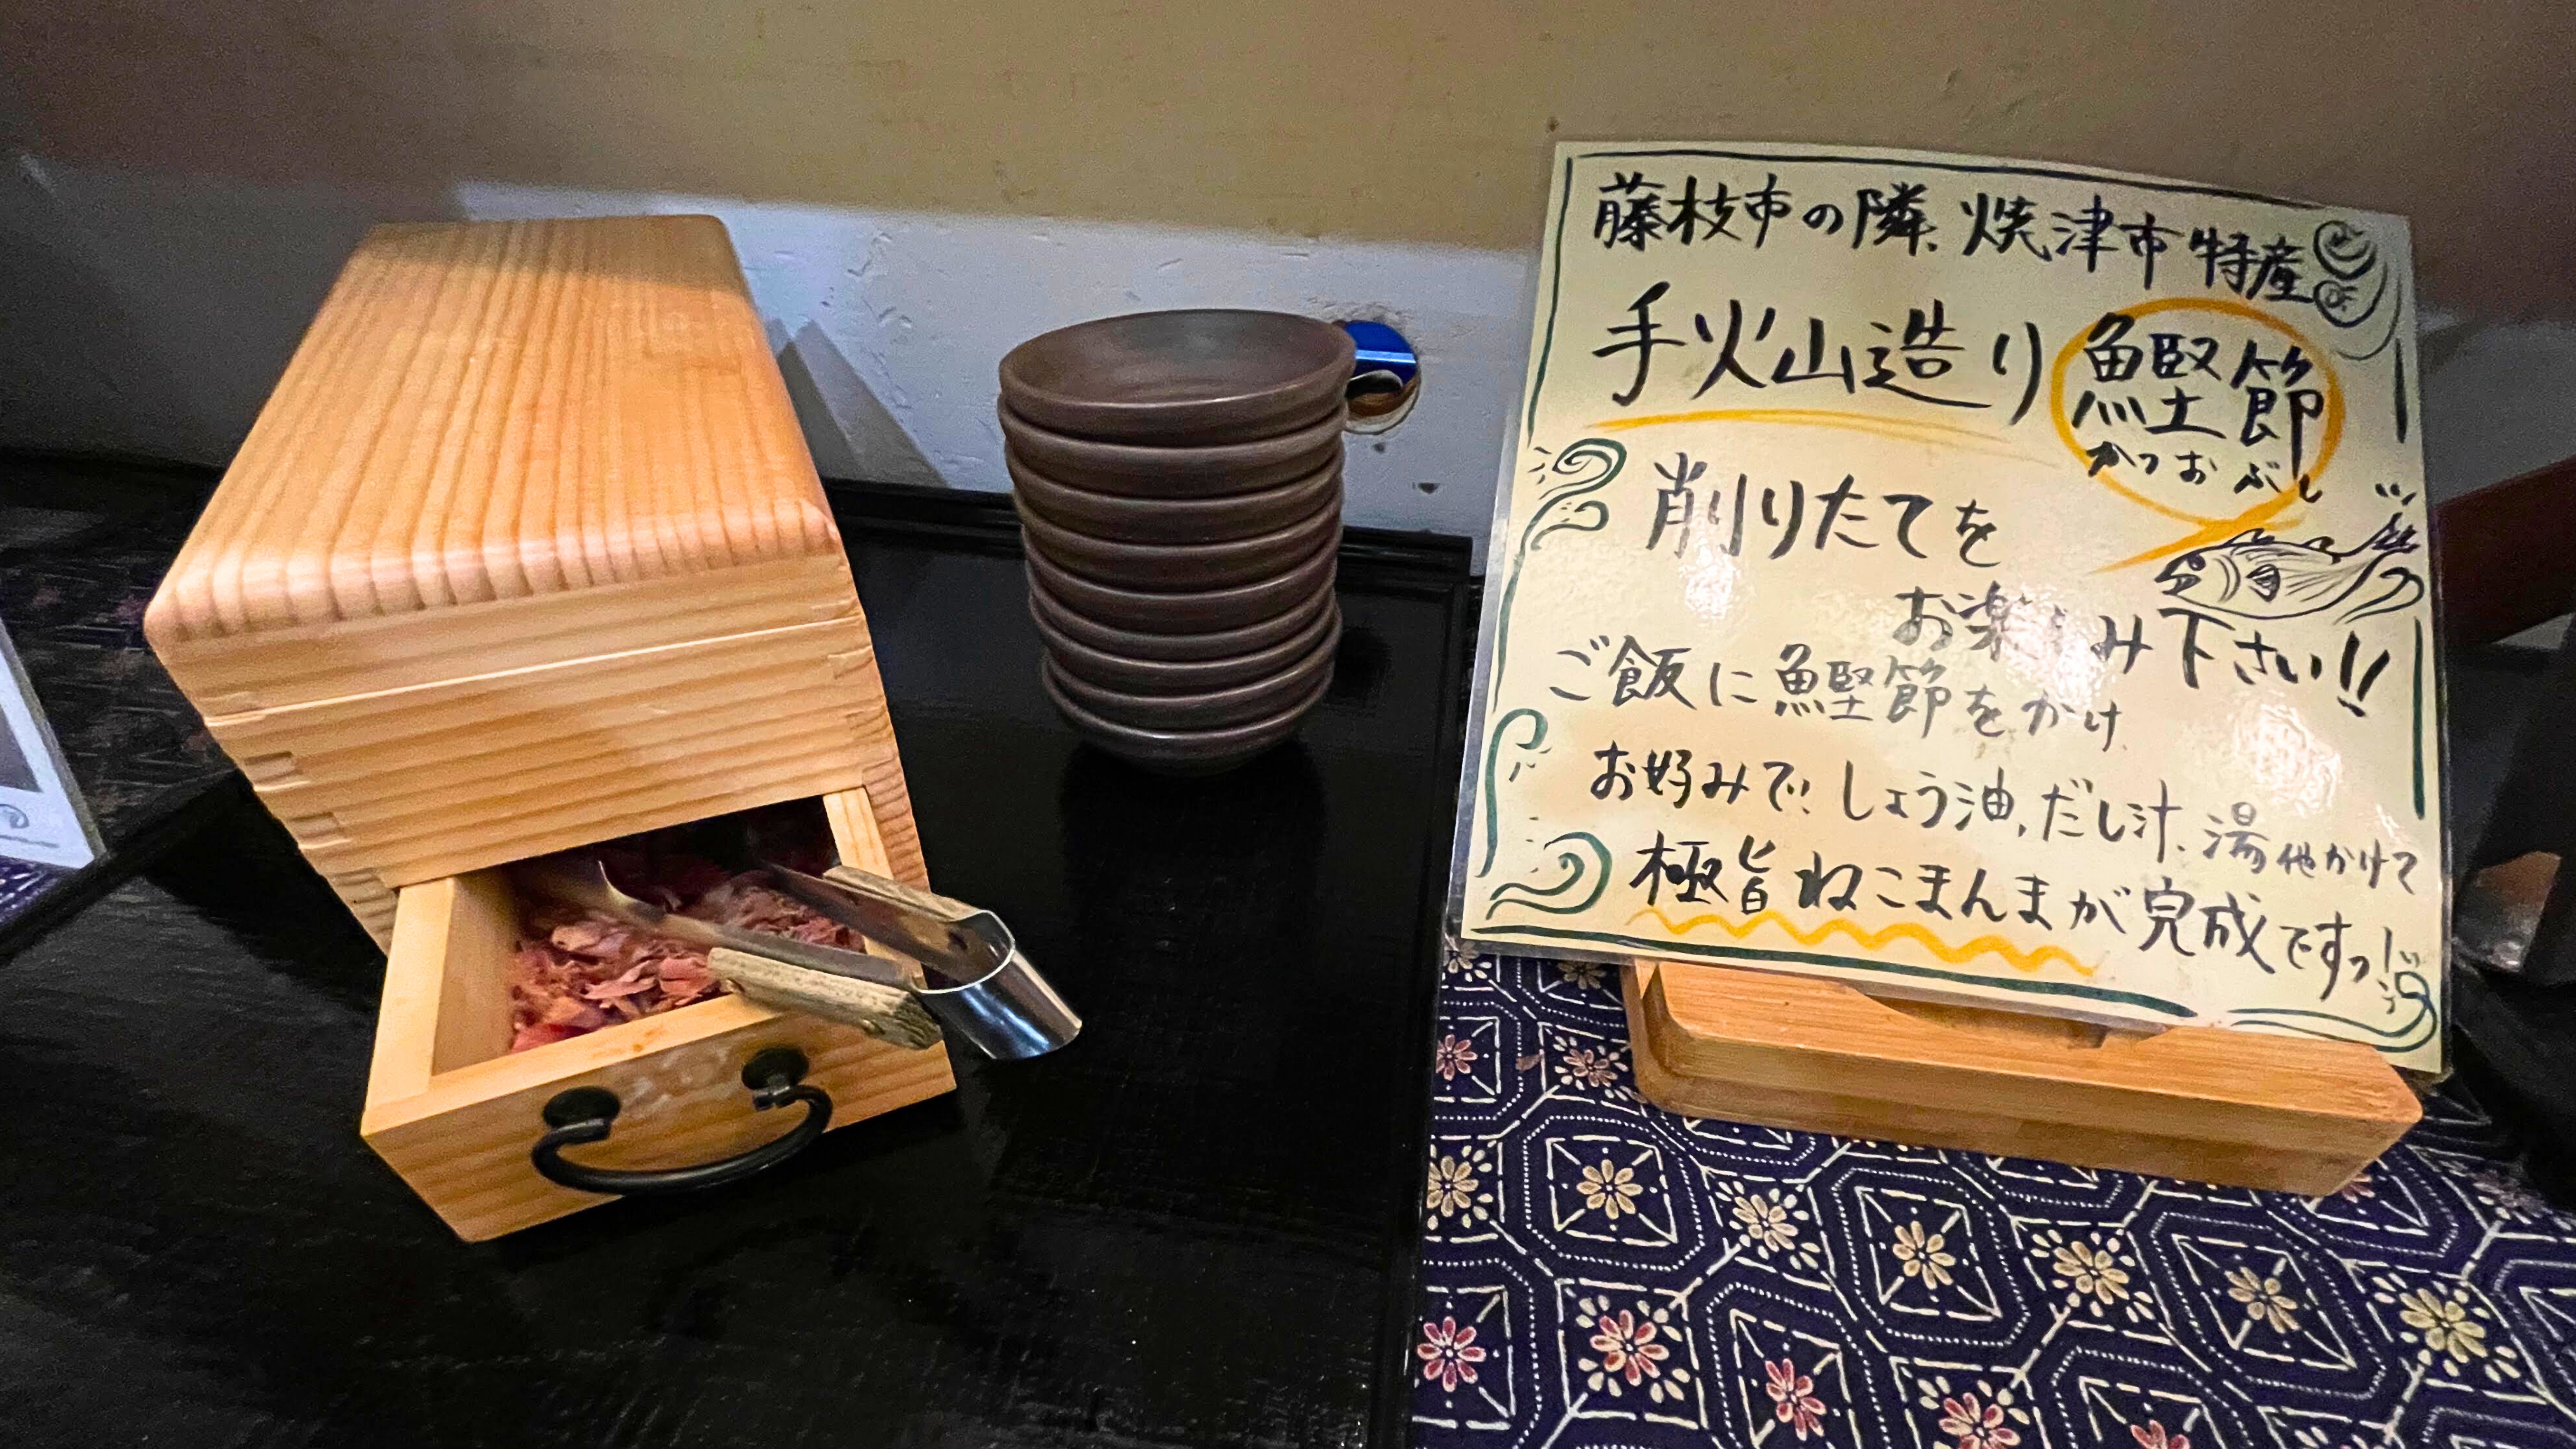 藤枝市の隣、焼津市特産
手火山造り 鰹節
かつおぶし
削りたてを
お楽しみ下さい!!
ご飯に鰹節をかけ
お好みで!しょう油、だし汁、湯他かけて
極旨ねこまんまが完成ですっ!